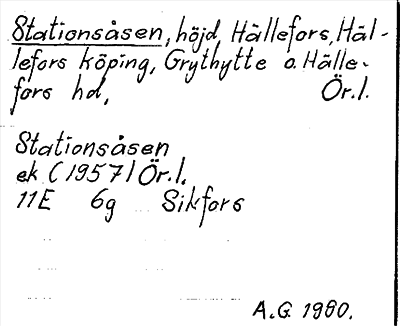 Stationsåsen, höjd, Hällefors, Häl-
lefors köping, Grythytte o. Hälle-
fors hd, Ör.l.
Stationsåsen
ek (1957) Ör.l.
11E 6g Sikfors
A.G. 1980.